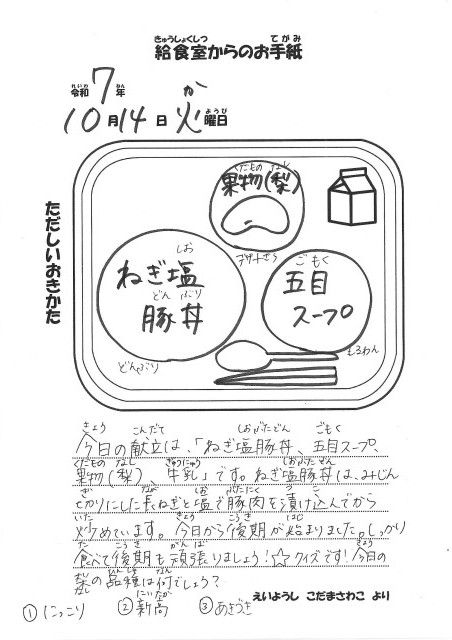 きゅうしょくしつ てがみ
給食室からのお手紙
れいわ ねん か
令和7年
ようび
10月14日火曜日
ただしいおきかた
くだもの なし
果物(梨)
デザートざら
しお
ねぎ塩
どん ぶり
豚丼
どんぶり
ごもく
五目
スープ
しるわん
きょう こんだて しおぶたどん ごもく
今日の献立は、「ねぎ塩豚丼、五目スープ、
くだもの なし ぎゅうにゅう しおぶたどん
果物(梨) 牛乳」です。ねぎ塩豚丼は、みじん
ぎ なが しお ぶたにく つ こ
切りにした長ねぎと塩で豚肉を漬け込んでから
いた きょう こうき はじ
炒めています。今日から後期が始まりました。しっかり
た こうき がんば きょう
食べて後期も頑張りましょう!☆クイズです!今日の
なし ひんしゅ なん
梨の品種は何でしょう?
にいたか
①にっこり ②新高 ③あきづき
えいようし こだまさわこ より